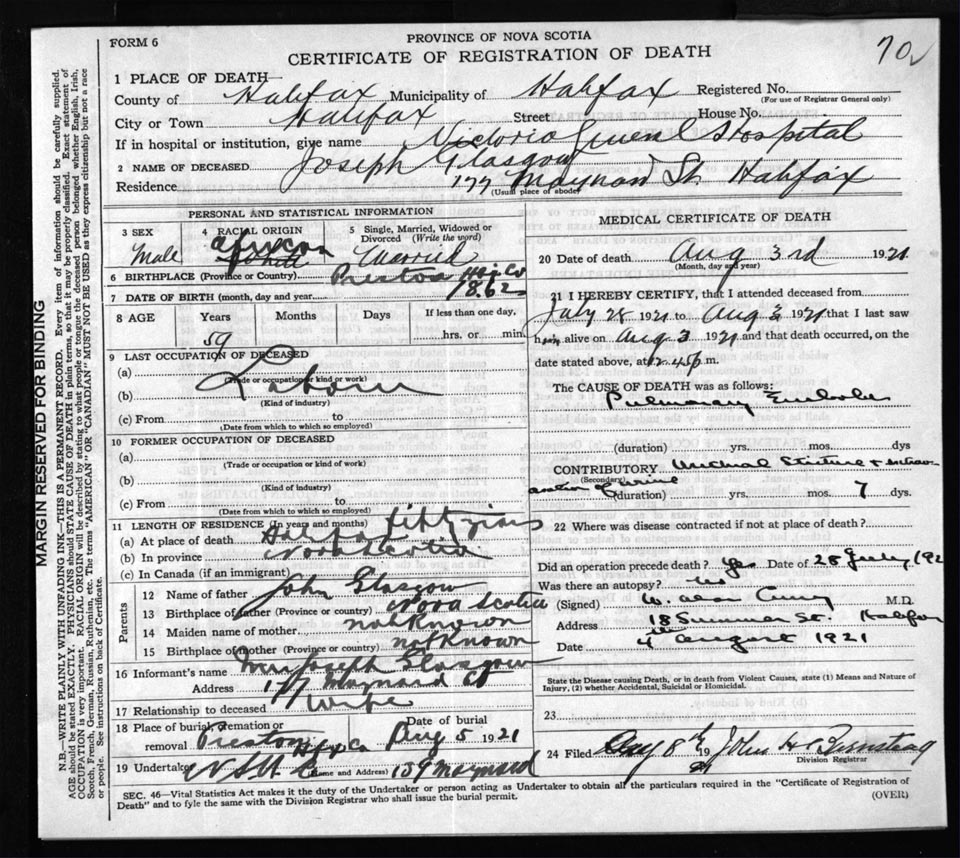 FORM 6
PROVINCE OF NOVA SCOTIA
CERTIFICATE OF REGISTRATION OF DEATH
70
1 PLACE OF DEATH
County of Halifax Municipality of Halifax Registered No.
(For use of Registrar General only)
City or Town Halifax Street House No.
If in hospital or institution, give name Victoria General Hospital
2 NAME OF DECEASED Joseph Glasgow
Residence 177 Maynard St. Halifax
(Usual place of abode)
PERSONAL AND STATISTICAL INFORMATION
3 SEX
Male
4 RACIAL ORIGIN
African
5 Single, Married, Widowed or Divorced (Write the word)
Married
6 BIRTHPLACE (Province or Country) Preston Hfx Co
7 DATE OF BIRTH (month, day and year) 1862
8 AGE Years Months Days If less than one day,
59 hrs. or min.
9 LAST OCCUPATION OF DECEASED
(a) Labour
(Trade or occupation or kind of work)
(b)
(Kind of industry)
(c) From to
(Date from which to which so employed)
10 FORMER OCCUPATION OF DECEASED
(a)
(Trade or occupation or kind of work)
(b)
(Kind of industry)
(c) From to
(Date from which to which so employed)
11 LENGTH OF RESIDENCE (In years and months)
(a) At place of death Halifax fifty years
(b) In province Nova Scotia
(c) In Canada (if an immigrant)
Parents
12 Name of father John Glasgow
13 Birthplace of father (Province or country) Nova Scotia
14 Maiden name of mother not Known
15 Birthplace of mother (Province or country) not Known
16 Informant's name Mrs Joseph Glasgow
Address 177 Maynard St
17 Relationship to deceased Wife
18 Place of burial, cremation or removal Preston Hfx Co
Date of burial Aug 5 1921
19 Undertaker (Name and Address) 159 Maynard
MEDICAL CERTIFICATE OF DEATH
20 Date of death Aug 3rd 1921
(Month, day and year)
21 I HEREBY CERTIFY, that I attended deceased from
July 28 1921 to Aug 3 1921 that I last saw
him alive on Aug 3 1921 and that death occurred, on the
date stated above, at 12.45 p. m.
The CAUSE OF DEATH was as follows:
Pulmonary Embolus
(duration) yrs. mos. dys
CONTRIBUTORY Urethral Stricture +
(Secondary)
(duration) yrs. mos. 7 dys.
22 Where was disease contracted if not at place of death?
Did an operation precede death? Yes Date of 28 July, 192
Was there an autopsy? no
(Signed) M.D.
Address 18 Summer St. Halifax
Date 4th August 1921
State the Disease causing Death, or in death from Violent Causes, state (1) Means and Nature of Injury, (2) whether Accidental, Suicidal or Homicidal.
23
24 Filed Aug 8th 19 21 John H
Division Registrar
SEC. 46—Vital Statistics Act makes it the duty of the Undertaker or person acting as Undertaker to obtain all the particulars required in the "Certificate of Registration of
Death" and to fyle the same with the Division Registrar who shall issue the burial permit.
(OVER)
MARGIN RESERVED FOR BINDING
N.B.—WRITE PLAINLY WITH UNFADING INK—THIS IS A PERMANENT RECORD. Every item of information should be carefully supplied.
AGE should be stated EXACTLY. PHYSICIANS should STATE CAUSE OF DEATH in plain terms, so that it may be properly classified. Exact statement of
OCCUPATION is very important. RACIAL ORIGIN will be described by stating to what people or tongue the deceased person belonged whether English, Irish,
Scotch, French, German, Russian, Ruthenian, etc. The terms "AMERICAN" OR "CANADIAN" MUST NOT BE USED as they express citizenship but not a race
or people. See instructions on back of Certificate.